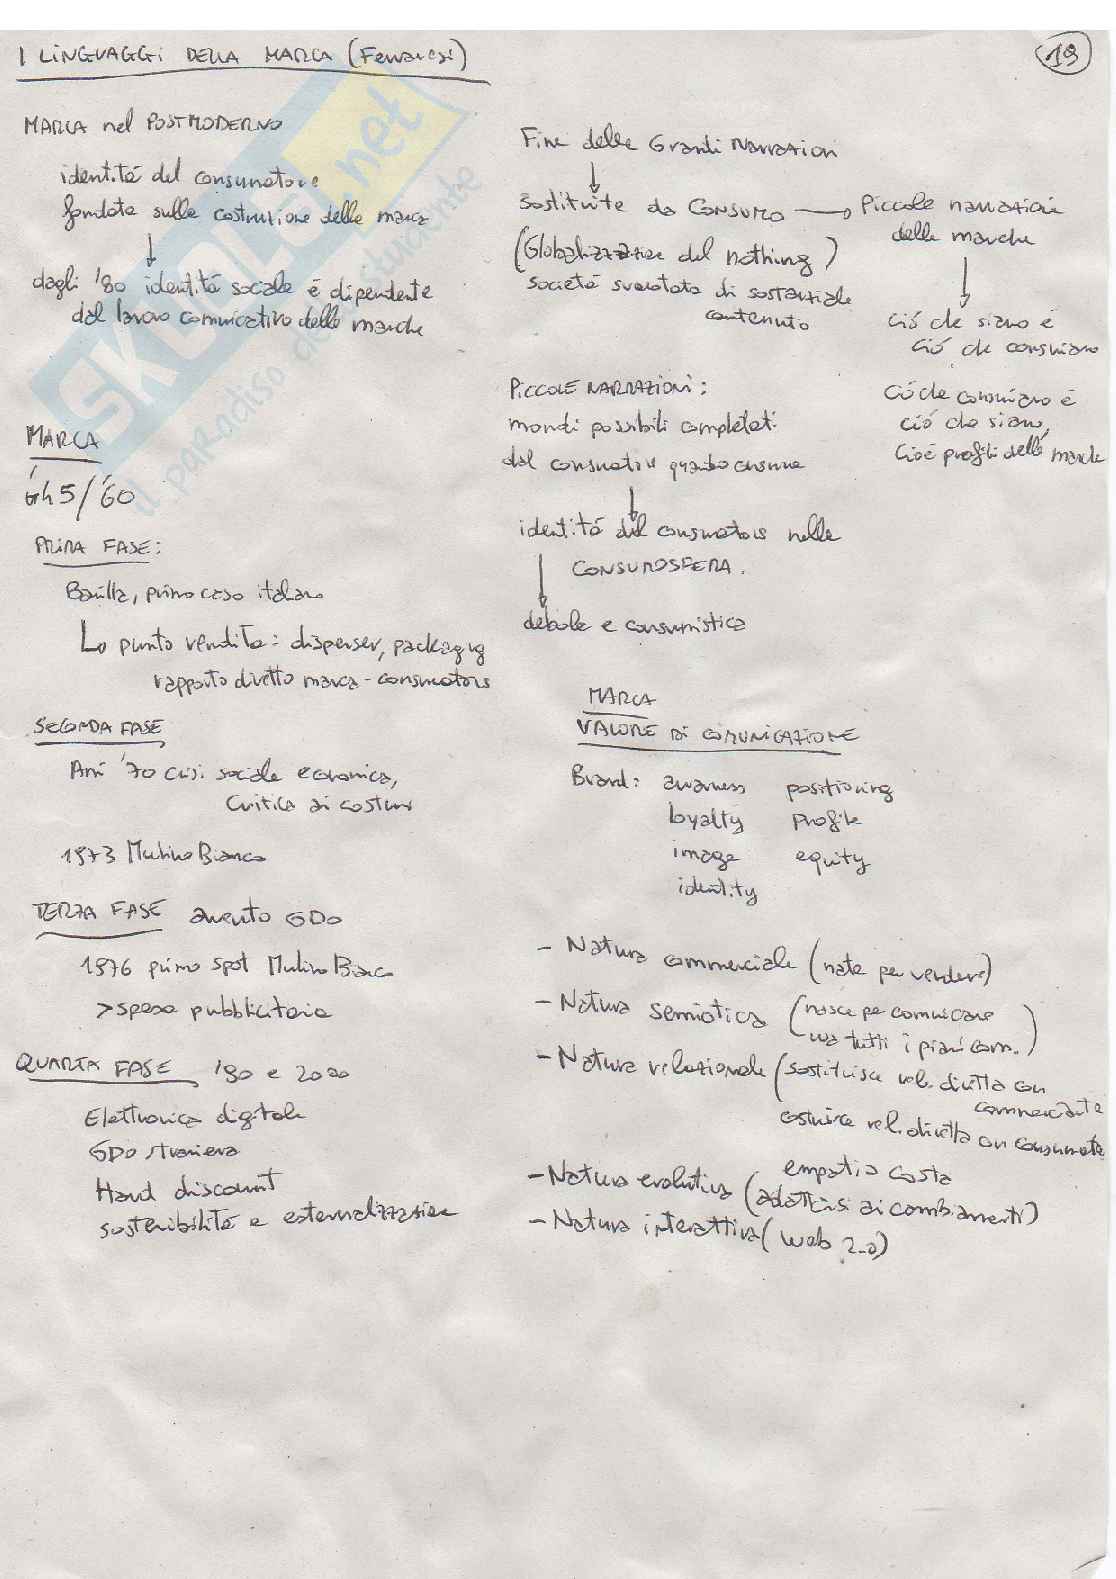 I LINGUAGGI DELLA MARCA (Ferraresi)
19
MARCA nel POSTMODERNO
identitá del consumatore
fondata sulla costruzione delle marca
dagli '80 identitá sociale é dipendente
dal lavoro comunicativo delle marche
MARCA
5/'60
PRIMA FASE:
Barilla, primo caso italiano
punto vendita: dispenser, packaging
rapporto diretto marca-consumatore
SECONDA FASE
Anni '70 crisi sociale economica,
Critica ai costumi
1973 Mulino Bianco
TERZA FASE aumento GDO
1976 primo spot Mulino Bianco
>spesa pubblicitaria
QUARTA FASE '90 e 2000
Elettronica digitale
GDO straniera
Hard discount
sostenibilitá e esternalizzazione
Fine delle Grandi Narrazioni
Sostituite da CONSUMO → Piccole narrazioni
delle marche
(Globalizzazione del nothing)
societá svuotata di sostanziale
contenuto
Ció che siamo é
ció che consumiamo
Ció che consumiamo é
ció che siamo,
cioé profili delle marche
PICCOLE NARRAZIONI:
mondi possibili completati
dal consumatore quando consuma
identitá del consumatore nella
CONSUMOSFERA.
debole e consumistica
MARCA
VALORE DI COMUNICAZIONE
Brand: awarness positioning
loyalty profile
image equity
identity
- Natura commerciale (nate per vendere)
- Natura semiotica (nasce per comunicare
usa tutti i piani com.)
- Natura relazionale (sostituisce rel. diretta con
commerciante
costruisce rel. diretta con consumatore
empatia costa
- Natura evolutiva (adattarsi ai cambiamenti)
- Natura interattiva (web 2.0)
SKUOLA.net
il paradiso dello studente